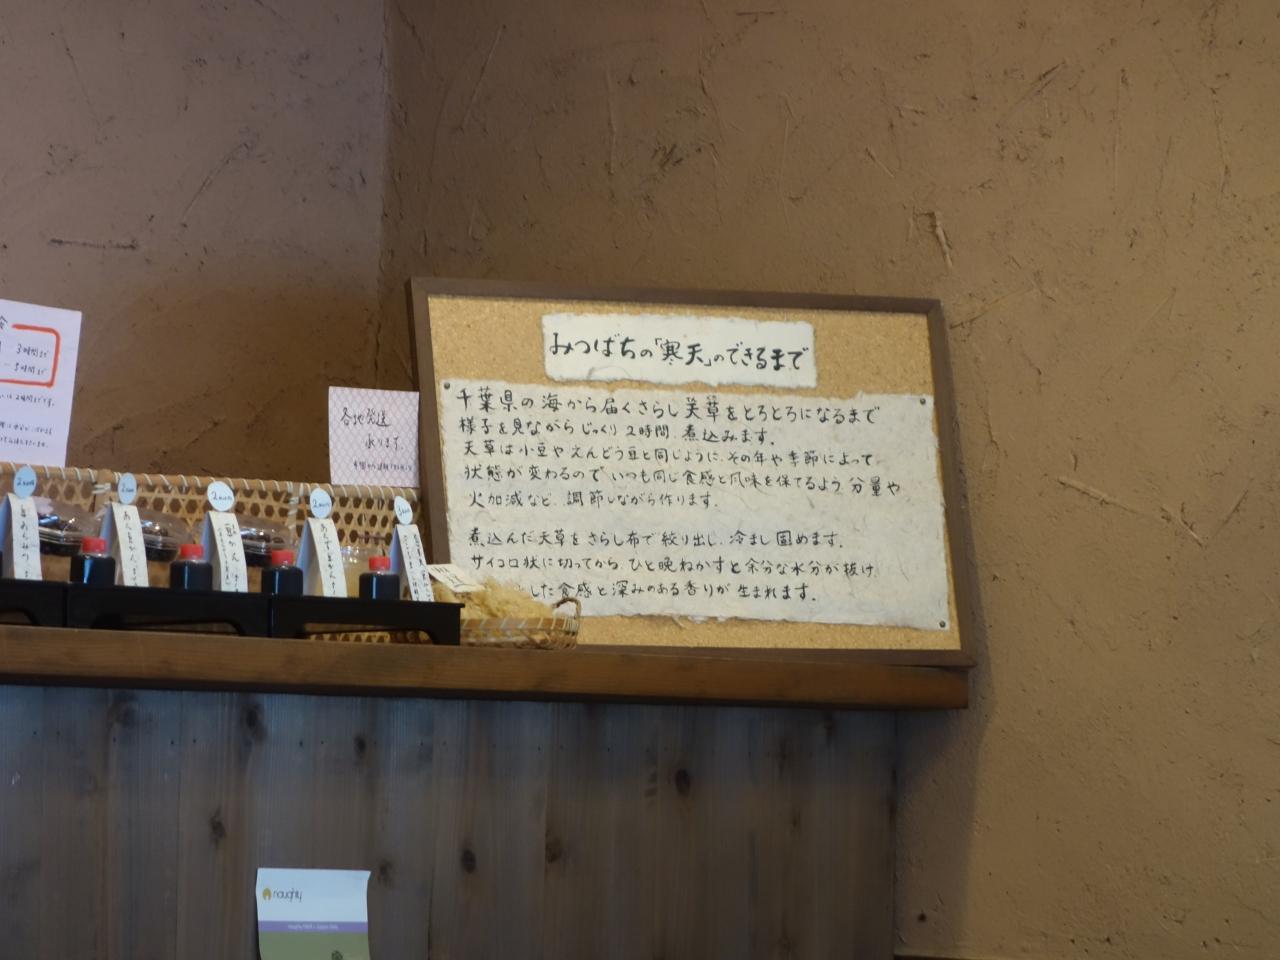 みつばちの「寒天」のできるまで
千葉県の海から届くさらし天草をとろとろになるまで
様子を見ながらじっくり2時間、煮込みます。
天草は小豆やえんどう豆と同じように、その年や季節によって
状態が変わるので、いつも同じ食感と風味を保てるよう、分量や
火加減など、調節しながら作ります。
煮込んだ天草をさらし布で絞り出し、冷まし固めます。
サイコロ状に切ってから、ひと晩ねかすと余分な水分が抜け、
した食感と深みのある香りが生まれます。
各地発送
承ります。
3時間まで
5時間まで
naughty